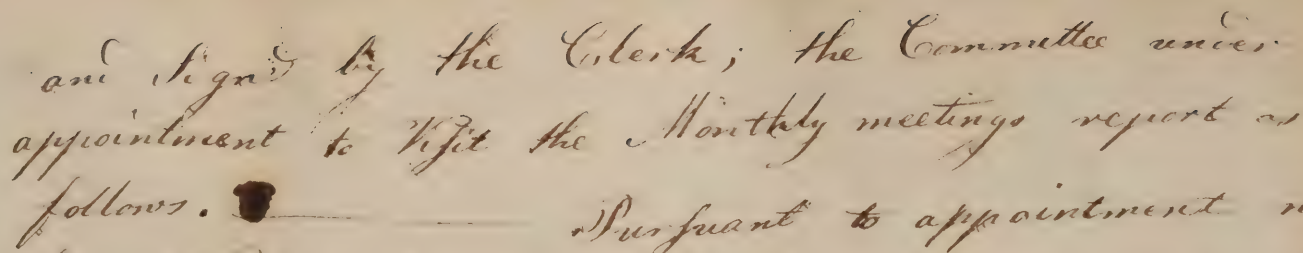 and Sign'd by the Clerk; the Committee under
appointment to Visit the Monthly meetings report as
follows. Pursuant to appointment